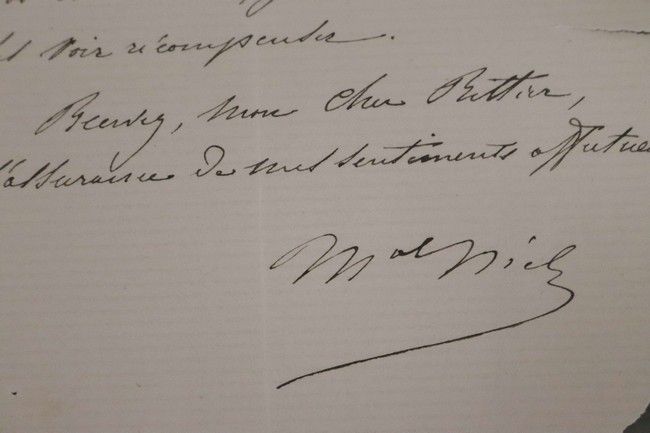 voir récompenser.
Recevez, mon cher Rittier,
l'assurance de mes sentiments affectueu
Mal Niel